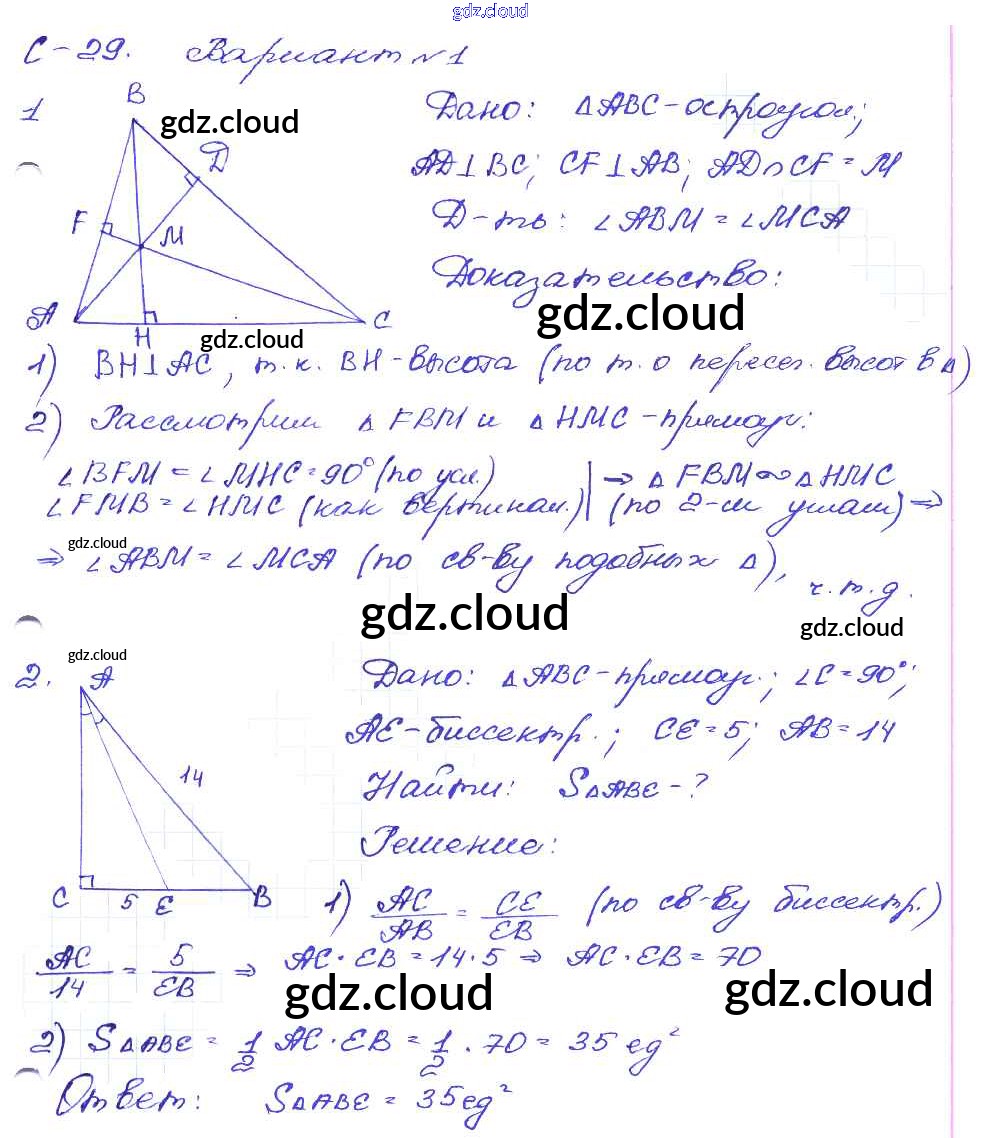 gdz.cloud
С-29. Вариант №1
1
B
gdz.cloud
D
F
M
A
H
C
gdz.cloud
Дано: △ABC-остроугол.;
AD⊥BC; CF⊥AB; AD∩CF=M
Д-ть: ∠ABM=∠MCA
Доказательство:
gdz.cloud
1) BH⊥AC, т.к. BH-высота (по т. о пересеч. высот в △)
2) Рассмотрим △FBM и △HMC-прямоуг.:
∠BFM=∠MHC=90° (по усл.) | ⇒ △FBM∞△HMC
∠FMB=∠HMC (как вертикал.) | (по 2-м углам) ⇒
gdz.cloud
⇒ ∠ABM=∠MCA (по св-ву подобных △),
ч.т.д.
gdz.cloud
gdz.cloud
2.
gdz.cloud
A
14
C
5
E
B
Дано: △ABC-прямоуг.; ∠C=90°;
AE-биссектр.; CE=5; AB=14
Найти: S△ABE-?
Решение:
1) AC/AB = CE/EB (по св-ву биссектр.)
AC/14 = 5/EB ⇒ AC·EB=14·5 ⇒ AC·EB=70
gdz.cloud
gdz.cloud
2) S△ABE = 1/2 AC·EB = 1/2 · 70 = 35 ед²
Ответ: S△ABE = 35 ед²